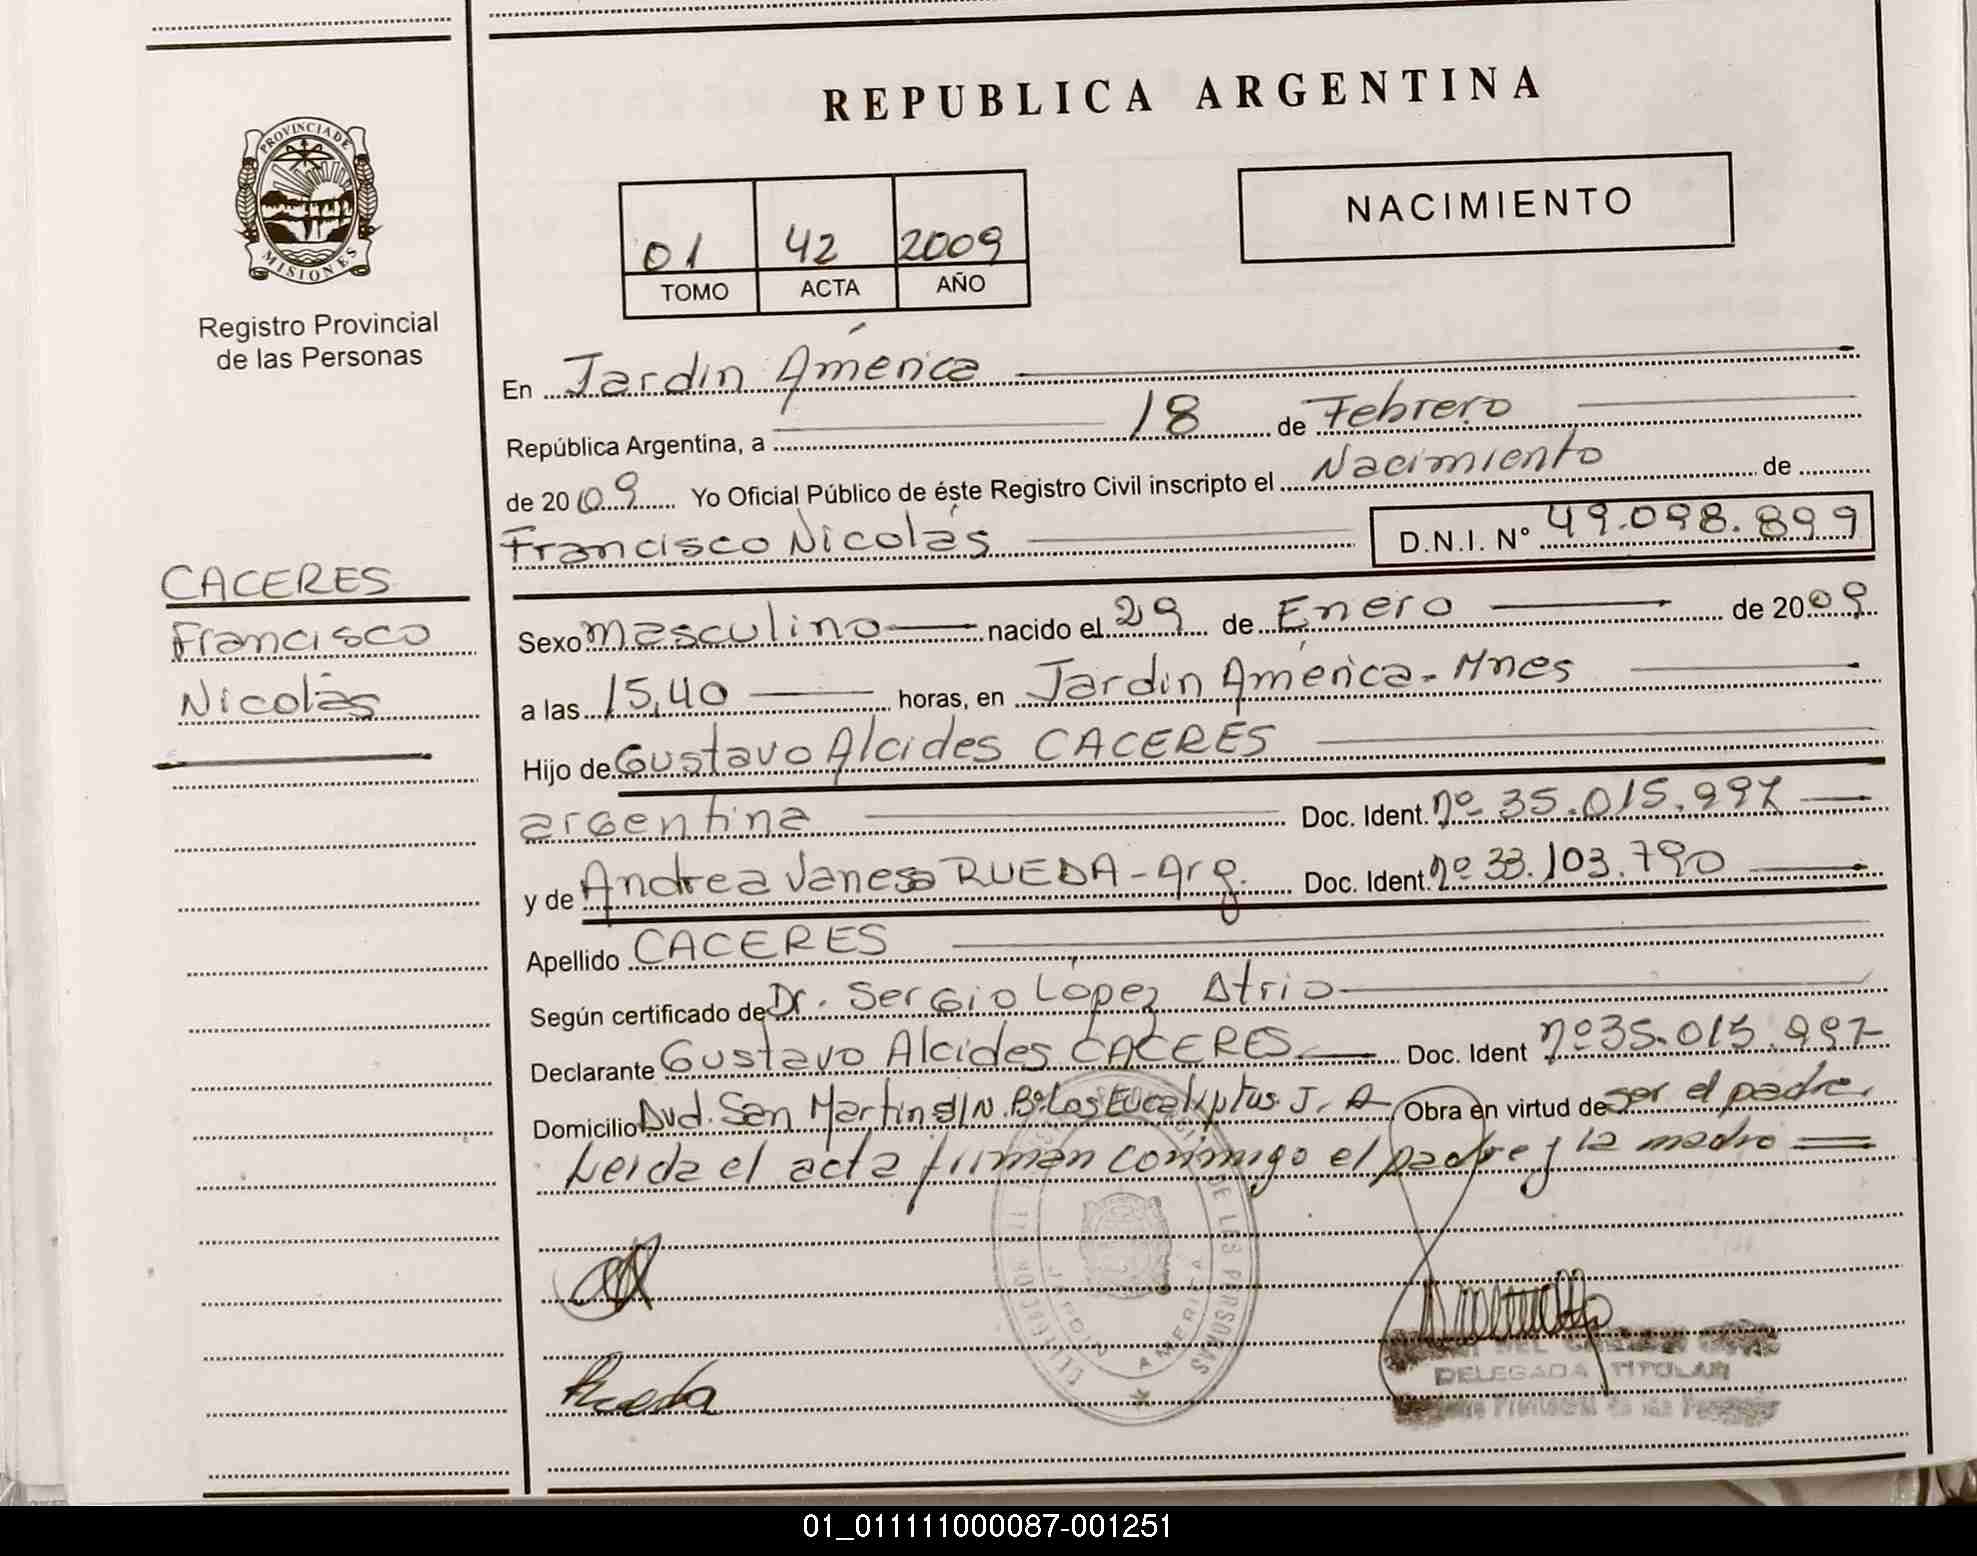 REPUBLICA ARGENTINA
PROVINCIA DE
MISIONES
Registro Provincial
de las Personas
01 42 2009
TOMO ACTA AÑO
NACIMIENTO
En Jardín América
República Argentina, a 18 de Febrero
de 2009 Yo Oficial Público de éste Registro Civil inscripto el Nacimiento de
Francisco Nicolás D.N.I. N° 49.098.899
CACERES
Francisco
Nicolás
Sexo masculino nacido el 29 de Enero de 2009
a las 15,40 horas, en Jardín América - Mnes
Hijo de Gustavo Alcides CACERES
argentina Doc. Ident. nº 35.015.997
y de Andrea Vanesa RUEDA - Arg. Doc. Ident. nº 33.103.790
Apellido CACERES
Según certificado de Dr. Sergio López Atrio
Declarante Gustavo Alcides CACERES Doc. Ident nº 35.015.997
Domicilio Avd. San Martin s/N. Bº Los Eucaliptus J. A Obra en virtud de ser el padre.
Leida el acta firman conmigo el padre y la madre
Rueda
AMERICA
DE LAS PERSONAS
DELEGADA TITULAR
Registro Provincial de las Personas
01_011111000087-001251